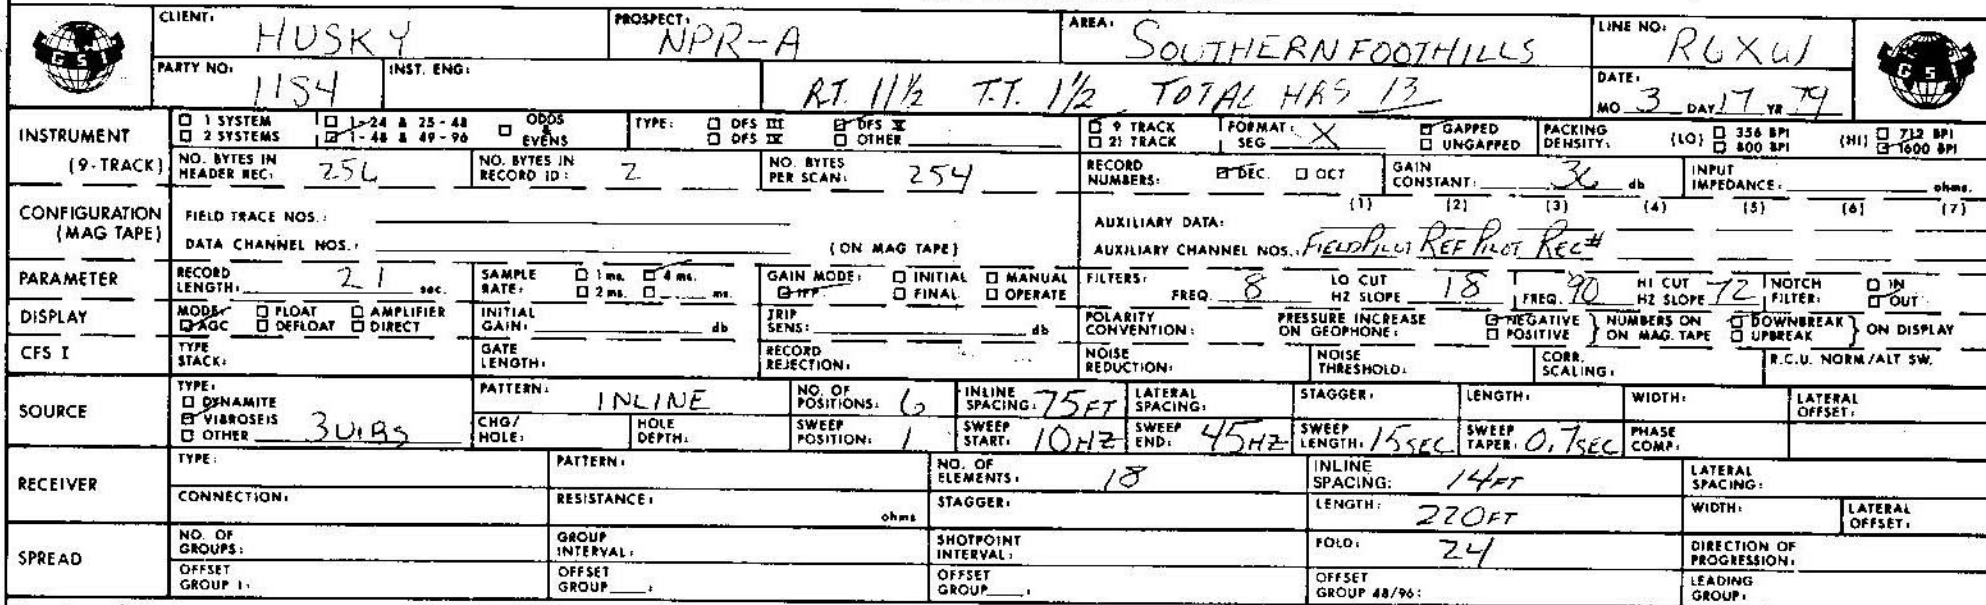 CLIENT: HUSKY PROSPECT: NPR-A AREA: SOUTHERN FOOTHILLS LINE NO:
GSI GSI
PARTY NO: 1154 INST. ENG: R.T. 11½ T.T. 1½ TOTAL HRS 13 DATE: MO 3 DAY 17 YR 79
INSTRUMENT (9-TRACK)
1 SYSTEM 1-24 & 25-48 ODDS & EVENS TYPE: DFS III DFS V 9 TRACK FORMAT: X GAPPED PACKING DENSITY: (LO) 356 BPI (HI) 712 BPI
2 SYSTEMS 1-48 & 49-96 DFS IV OTHER 21 TRACK SEG UNGAPPED 800 BPI 1600 BPI
NO. BYTES IN HEADER REC: 256 NO. BYTES IN RECORD ID: 2 NO. BYTES PER SCAN: 254 RECORD NUMBERS: DEC. OCT GAIN CONSTANT: 36 db INPUT IMPEDANCE: ohms.
CONFIGURATION (MAG TAPE)
FIELD TRACE NOS.: AUXILIARY DATA: (1) (2) (3) (4) (5) (6) (7)
DATA CHANNEL NOS.: (ON MAG TAPE) AUXILIARY CHANNEL NOS.: FIELD PILOT REF PILOT REC#
PARAMETER RECORD LENGTH: 21 sec. SAMPLE RATE: 1 ms. 4 ms. 2 ms. ms. GAIN MODE: INITIAL MANUAL IFP FINAL OPERATE FILTERS: FREQ. 8 LO CUT HZ SLOPE 18 FREQ. 90 HI CUT HZ SLOPE 72 NOTCH FILTER: IN OUT
DISPLAY MODE: FLOAT AMPLIFIER AGC DEFLOAT DIRECT INITIAL GAIN: db TRIP SENS: db POLARITY CONVENTION: PRESSURE INCREASE ON GEOPHONE: NEGATIVE POSITIVE NUMBERS ON MAG. TAPE DOWNBREAK UPBREAK ON DISPLAY
CFS I TYPE STACK: GATE LENGTH: RECORD REJECTION: NOISE REDUCTION: NOISE THRESHOLD: CORR. SCALING: R.C.U. NORM/ALT SW.
SOURCE TYPE: DYNAMITE VIBROSEIS OTHER 3 VIBS
PATTERN: INLINE NO. OF POSITIONS: 6 INLINE SPACING: 75 FT LATERAL SPACING: STAGGER: LENGTH: WIDTH: LATERAL OFFSET:
CHG/HOLE: HOLE DEPTH: SWEEP POSITION: 1 SWEEP START: 10 HZ SWEEP END: 45 HZ SWEEP LENGTH: 15 SEC SWEEP TAPER: 0.7 SEC PHASE COMP:
RECEIVER TYPE: PATTERN: NO. OF ELEMENTS: 18 INLINE SPACING: 14 FT LATERAL SPACING:
CONNECTION: RESISTANCE: ohms STAGGER: LENGTH: 220 FT WIDTH: LATERAL OFFSET:
SPREAD NO. OF GROUPS: GROUP INTERVAL: SHOTPOINT INTERVAL: FOLD: 24 DIRECTION OF PROGRESSION:
OFFSET GROUP 1: OFFSET GROUP : OFFSET GROUP : OFFSET GROUP 48/96: LEADING GROUP: